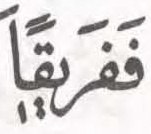 فَفَرِيقًا